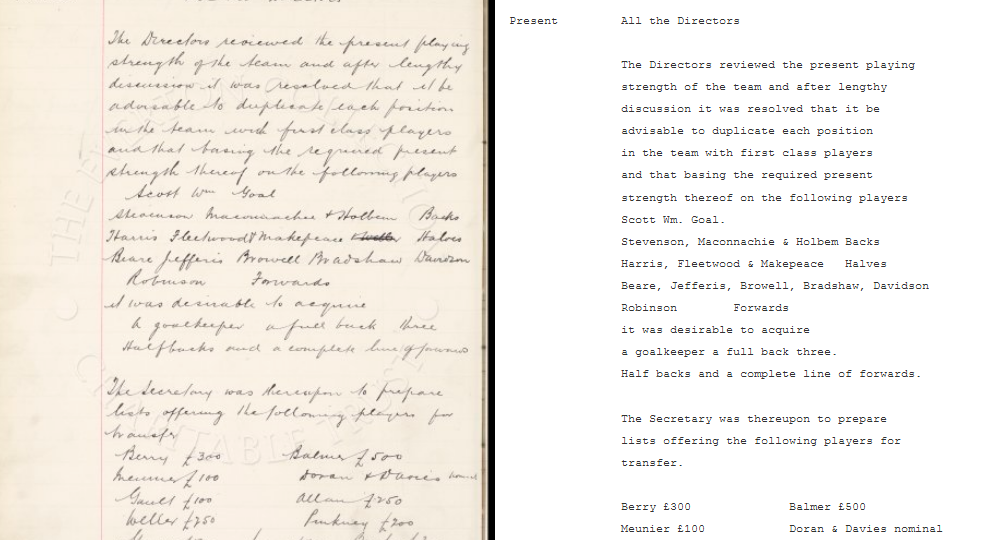 The Directors reviewed the present playing
strength of the team and after lengthy
discussion it was resolved that it be
advisable to duplicate each position
in the team with first class players
and that basing the required present
strength thereof on the following players
Scott Wm Goal
Stevenson Maconnachie & Holbem Backs
Harris Fleetwood & Makepeace Weller Halves
Beare Jefferis Browell Bradshaw Davidson
Robinson Forwards
it was desirable to acquire
a goalkeeper a full back three
Halfbacks and a complete line of forwards
The Secretary was thereupon to prepare
lists offering the following players for
transfer
Berry £300 Balmer £500
Meunier £100 Doran & Davies nominal
Gault £100 Allan £250
Weller £250 Pinkney £200
Present All the Directors
The Directors reviewed the present playing
strength of the team and after lengthy
discussion it was resolved that it be
advisable to duplicate each position
in the team with first class players
and that basing the required present
strength thereof on the following players
Scott Wm. Goal.
Stevenson, Maconnachie & Holbem Backs
Harris, Fleetwood & Makepeace Halves
Beare, Jefferis, Browell, Bradshaw, Davidson
Robinson Forwards
it was desirable to acquire
a goalkeeper a full back three.
Half backs and a complete line of forwards.
The Secretary was thereupon to prepare
lists offering the following players for
transfer.
Berry £300 Balmer £500
Meunier £100 Doran & Davies nominal